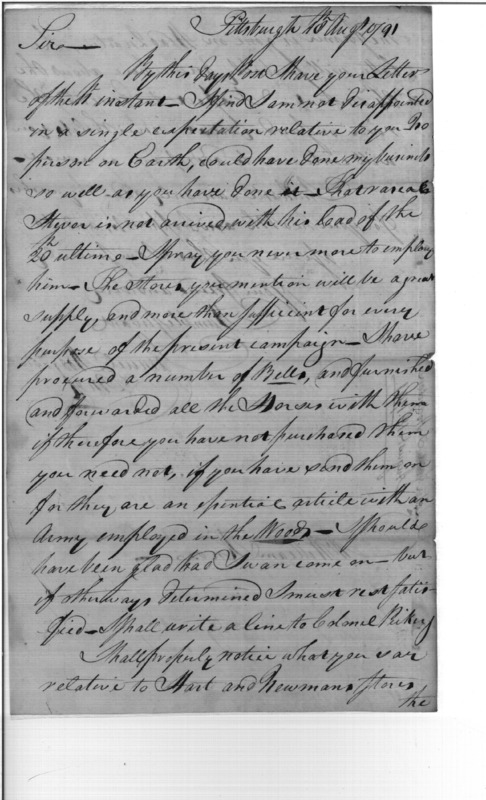 Pittsburgh 15 Augt. 1791
Sir—
By this days Post I have your Letter
of the 11 instant— I find I am not disappointed
in a single expectation relative to you No
person on Earth, could have done my business
so well as you have done it— That rascal
Stiver is not arrived with his load of the
20th ultimo— I pray you never more to employ
him— The Stores you mention will be a great
supply, and more than sufficient for every
purpose of the present campaign— I have
procured a number of Bells, and furnished
and forwarded all the Horses with them
if therefore you have not purchased them
you need not, if you have send them on
for they are an essential article with an
Army employed in the Woods— I should
have been glad had Swan come on— but
if otherways determined I must rest satis-
fied— I shall write a line to Colonel
I shall properly notice what you say
relative to Hart and Newmans stores,
the